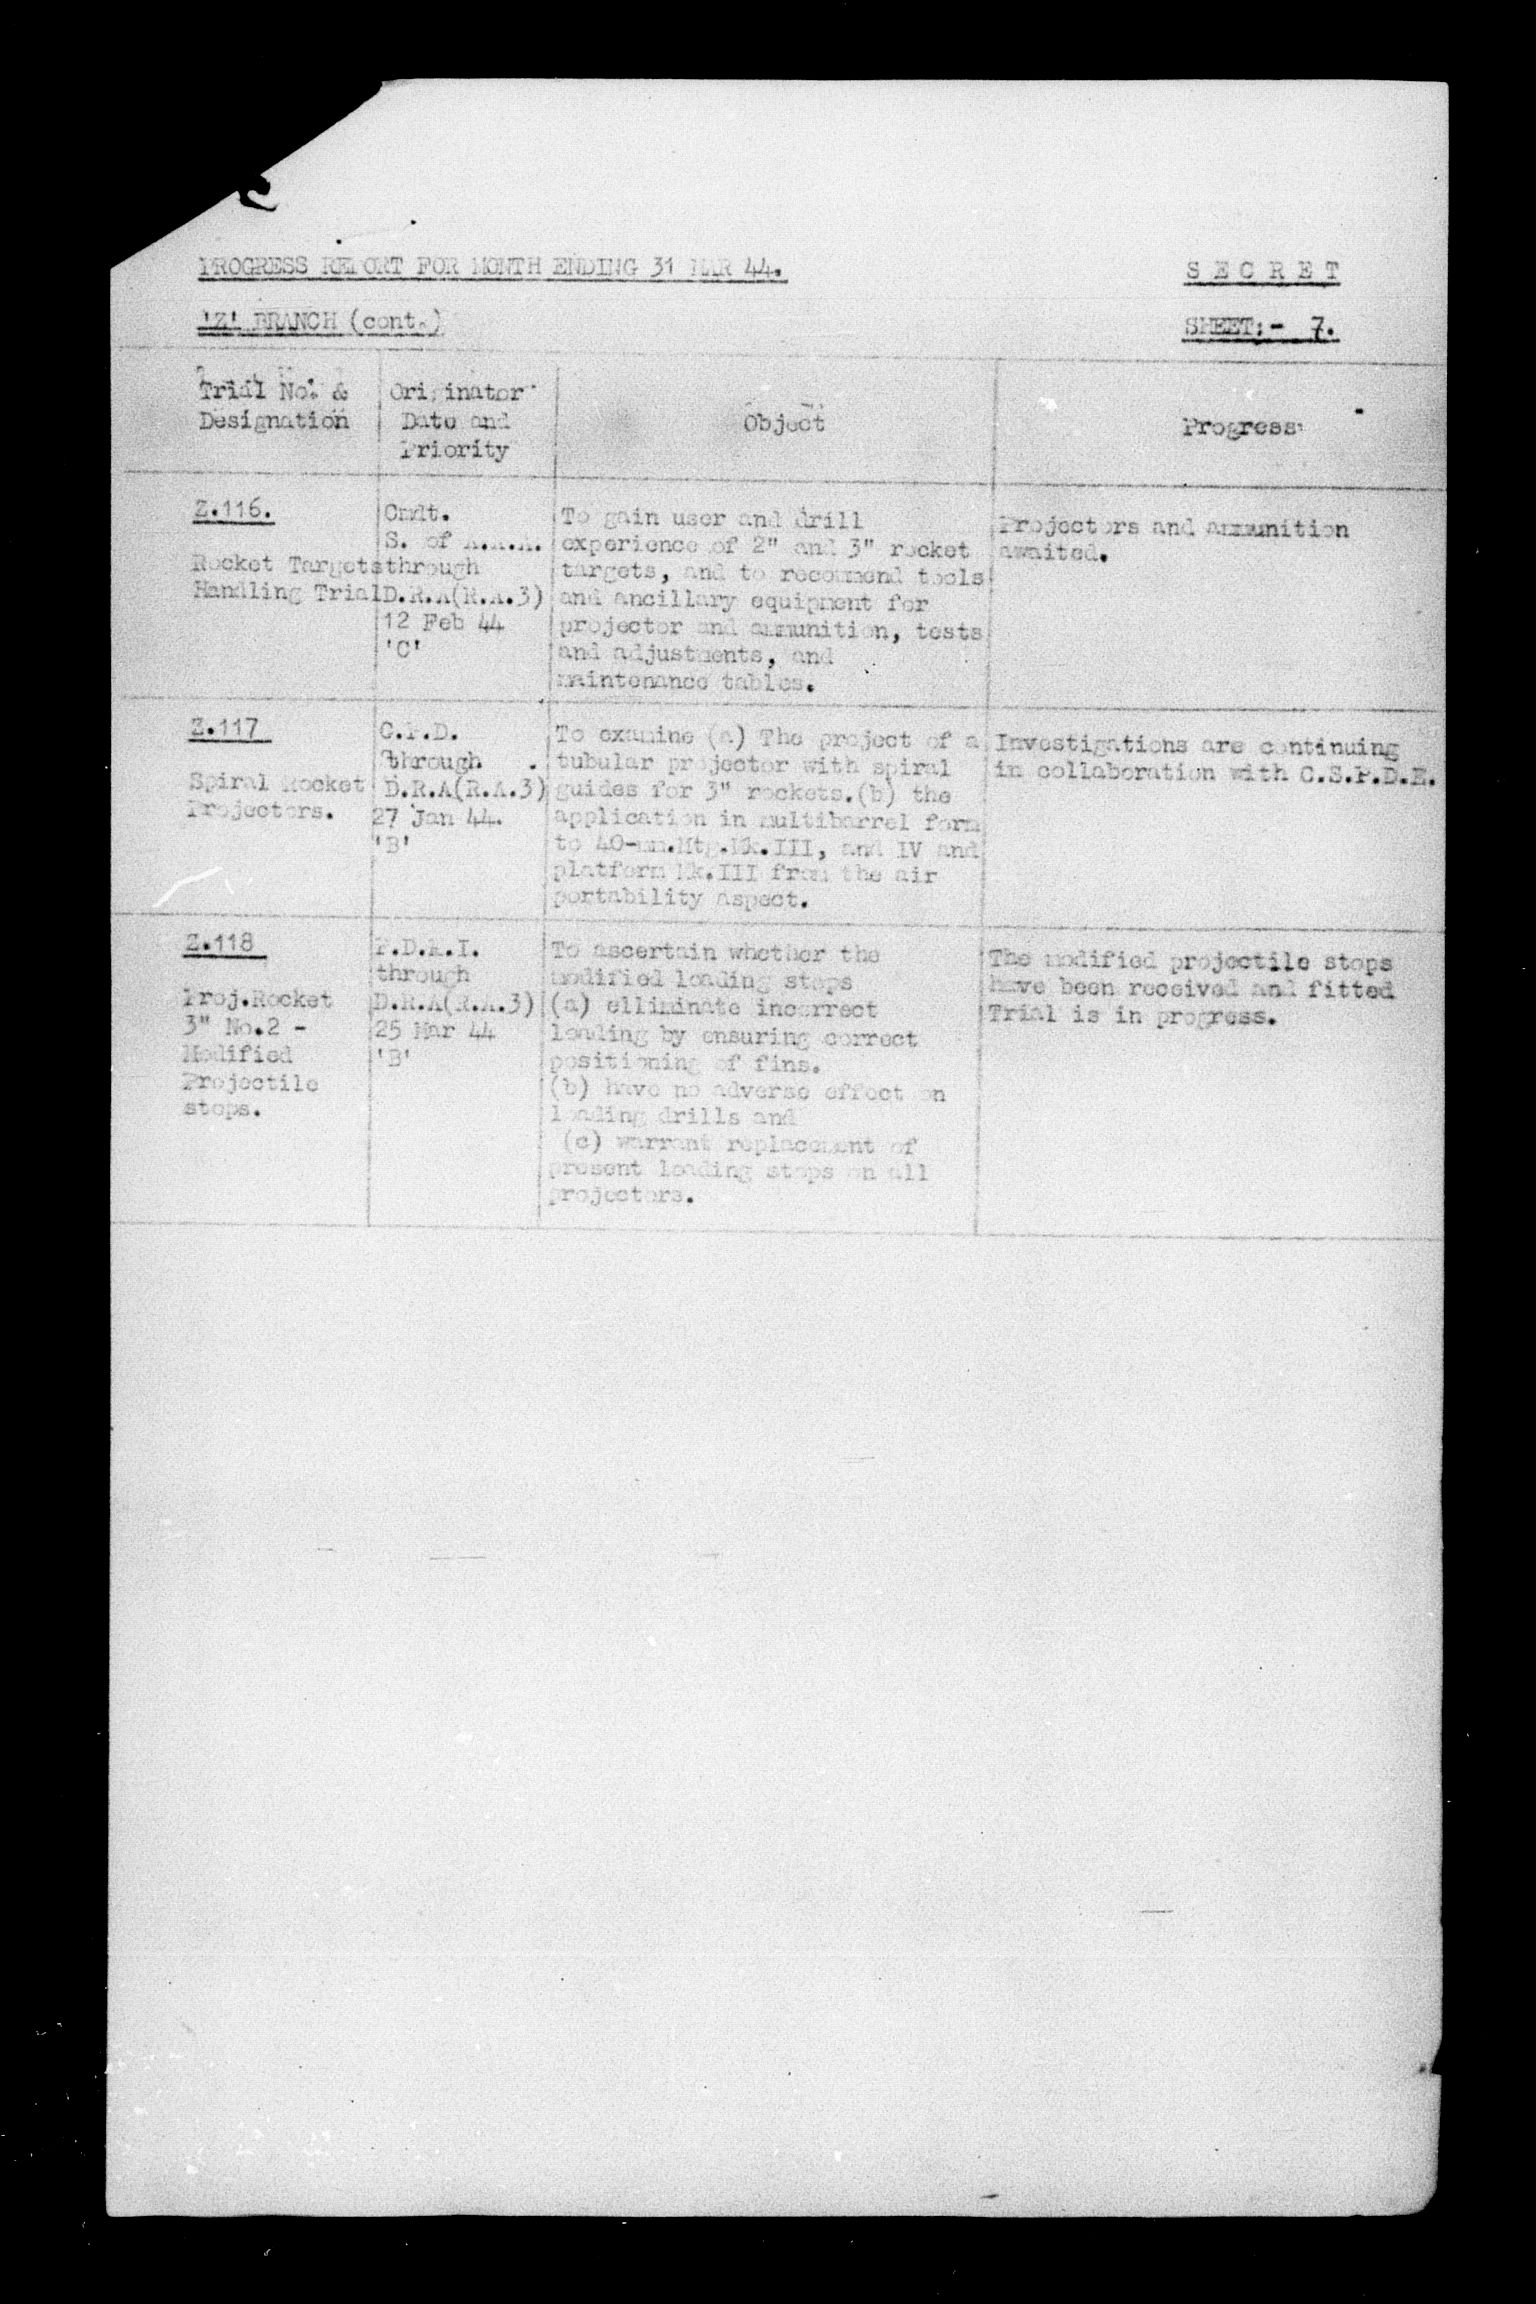 PROGRESS REPORT FOR MONTH ENDING 31 MAR 44.
S E C R E T
'Z' BRANCH (cont.)
SHEET:- 7.
Trial No. &
Designation
Originator
Date and
Priority
Object
Progress
Z.116.
Rocket Targets
Handling Trial
Cmdt.
S. of A.A.A.
through
D.R.A(R.A.3)
12 Feb 44
'C'
To gain user and drill
experience of 2" and 3" rocket
targets, and to recommend tools
and ancillary equipment for
projector and ammunition, tests
and adjustments, and
maintenance tables.
Projectors and ammunition
awaited.
Z.117
Spiral Rocket
Projectors.
C.P.D.
through
D.R.A(R.A.3)
27 Jan 44.
'B'
To examine (a) The project of a
tubular projector with spiral
guides for 3" rockets.(b) the
application in multibarrel form
to 40-mm.Mtg.Mk.III, and IV and
platform Mk.III from the air
portability aspect.
Investigations are continuing
in collaboration with C.S.P.D.E.
Z.118
Proj.Rocket
3" No.2 -
Modified
Projectile
stops.
through
D.R.A(R.A.3)
25 Mar 44
'B'
To ascertain whether the
modified loading stops
(a) elliminate incorrect
loading by ensuring correct
positioning of fins.
(b) have no adverse effect on
loading drills and
(c) warrant replacement of
present loading stops on all
projectors.
The modified projectile stops
have been received and fitted
Trial is in progress.